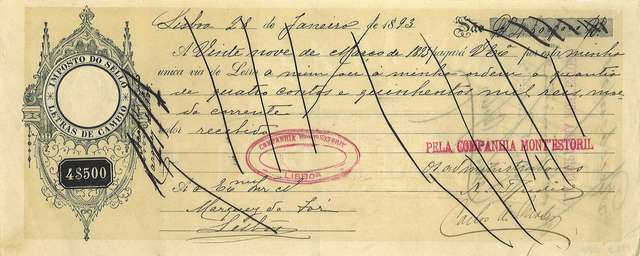 Lisboa 28 de Janeiro de 1893
São
A Vinte nove de Março de 1893 pagará V Exª por esta minha
unica via de Letra a mim ou á minha ordem a quantia
de quatro contos e quinhentos mil reis moeda
corrente
valor recebido
IMPOSTO DO SELLO
LETRAS DE CAMBIO
4$500
COMPANHIA MONT'ESTORIL
LISBOA
PELA COMPANHIA MONT'ESTORIL
Os administradores
Ao Exmo Snr
Marquez da Foz
Lisboa
Carlos